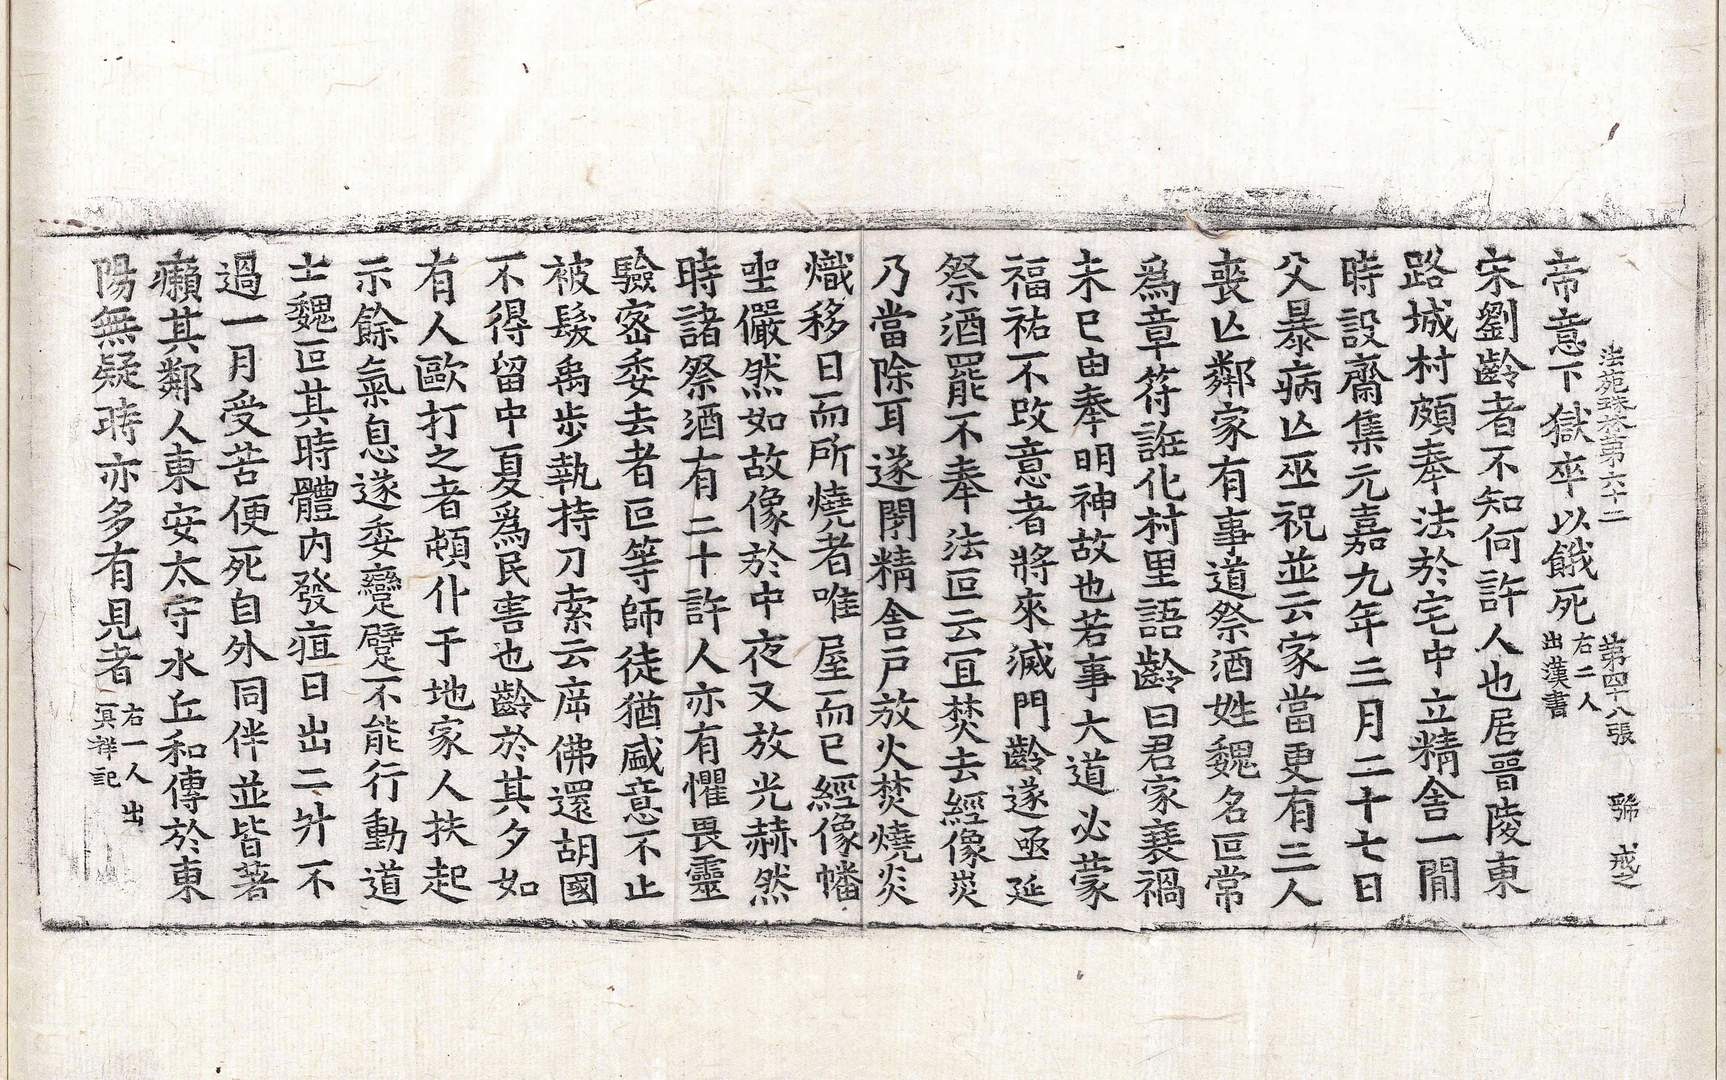 法苑珠林第六十二 第四十八張 號 戒之
帝意下獄卒以餓死右二人出漢書
宋劉齡者不知何許人也居晉陵東
路城村頗奉法於宅中立精舍一間
時設齋集元嘉九年三月二十七日
父暴病亾巫祝並云家當更有三人
喪亾鄰家有事道祭酒姓魏名叵常
爲章符誑化村里語齡曰君家衰禍
未已由奉明神故也若事大道必蒙
福祐不改意者將來滅門齡遂亟延
祭酒罷不奉法叵云宜焚去經像災
乃當除耳遂閉精舍戸放火焚燒炎
熾移日而所燒者唯屋而已經像幡
𫝆儼然如故像於中夜又放光赫然
時諸祭酒有二十許人亦有懼畏靈
驗密委去者叵等師徒猶盛意不止
被髮禹步執持刀索云斥佛還胡國
不得留中夏爲民害也齡於其夕如
有人歐打之者頓仆于地家人扶起
示餘氣息遂委躄躄不能行動道
士魏叵其時體內發疽日出二升不
過一月受苦便死自外同伴並皆著
癩其鄰人東安太守水丘和傳於東
陽無疑時亦多有見者右一人出冥祥記